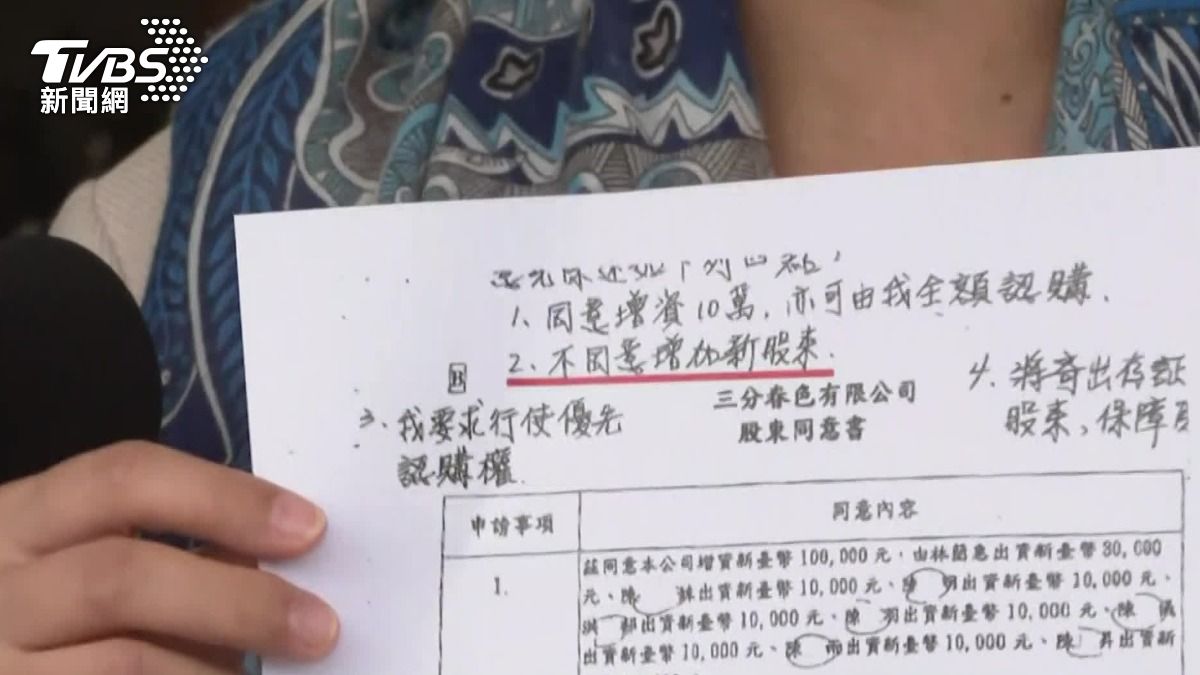 TVBS
新聞網
1、同意增資10萬,亦可由我全額認購.
2、不同意增加新股東.
B
三分春色有限公司
股東同意書
3、我要求行使優先
認購權.
4、將寄出存証
股東,保障
申請事項
同意內容
1.
茲同意本公司增資新臺幣100,000元,由林茵惠出資新臺幣30,000
元、陳 出資新臺幣10,000元、陳 明出資新臺幣10,000元、
洪 郁出資新臺幣10,000元、陳 羽出資新臺幣10,000元、陳
出資新臺幣10,000元、陳 雨出資新臺幣10,000元、陳 昇出資新